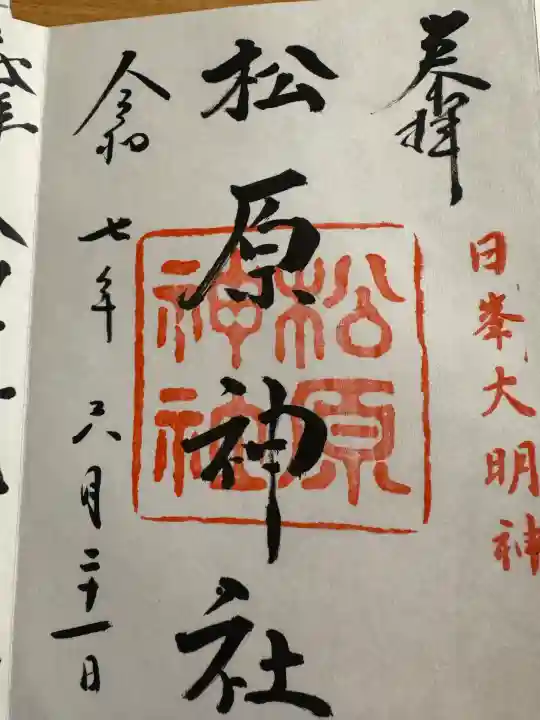 奉拝
日峯大明神
松原神社
松原神社
令和七年六月二十一日